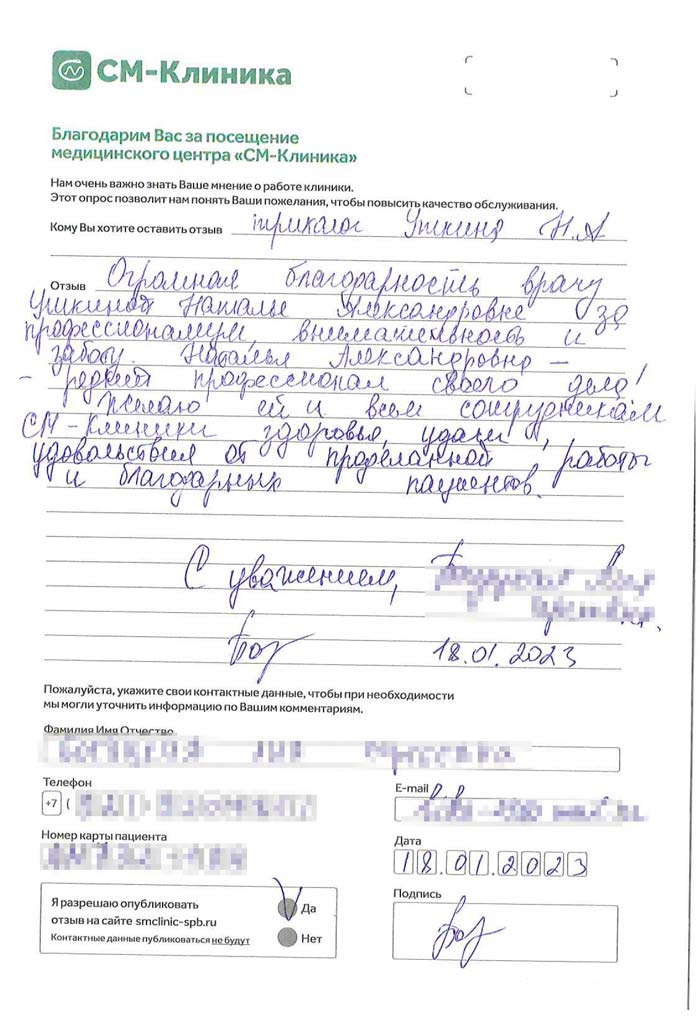 СМ-Клиника
Благодарим Вас за посещение
медицинского центра «СМ-Клиника»
Нам очень важно знать Ваше мнение о работе клиники.
Этот опрос позволит нам понять Ваши пожелания, чтобы повысить качество обслуживания.
Кому Вы хотите оставить отзыв Уткина Н.А
Отзыв Огромная благодарность врачу
Уткиной Наталье Александровне за
профессионализм, внимательность и
заботу. Наталья Александровна –
– редкий профессионал своего дела!
Желаю ей и всем сотрудникам
СМ-Клиники здоровья, удачи,
удовольствия от проделанной работы
и благодарных пациентов.
С уважением,
18.01.2023
Пожалуйста, укажите свои контактные данные, чтобы при необходимости
мы могли уточнить информацию по Вашим комментариям.
Фамилия Имя Отчество
Телефон
+7 (
E-mail
Номер карты пациента
Дата
18.01.2023
Я разрешаю опубликовать
отзыв на сайте smclinic-spb.ru
Контактные данные публиковаться не будут
Да
Нет
Подпись